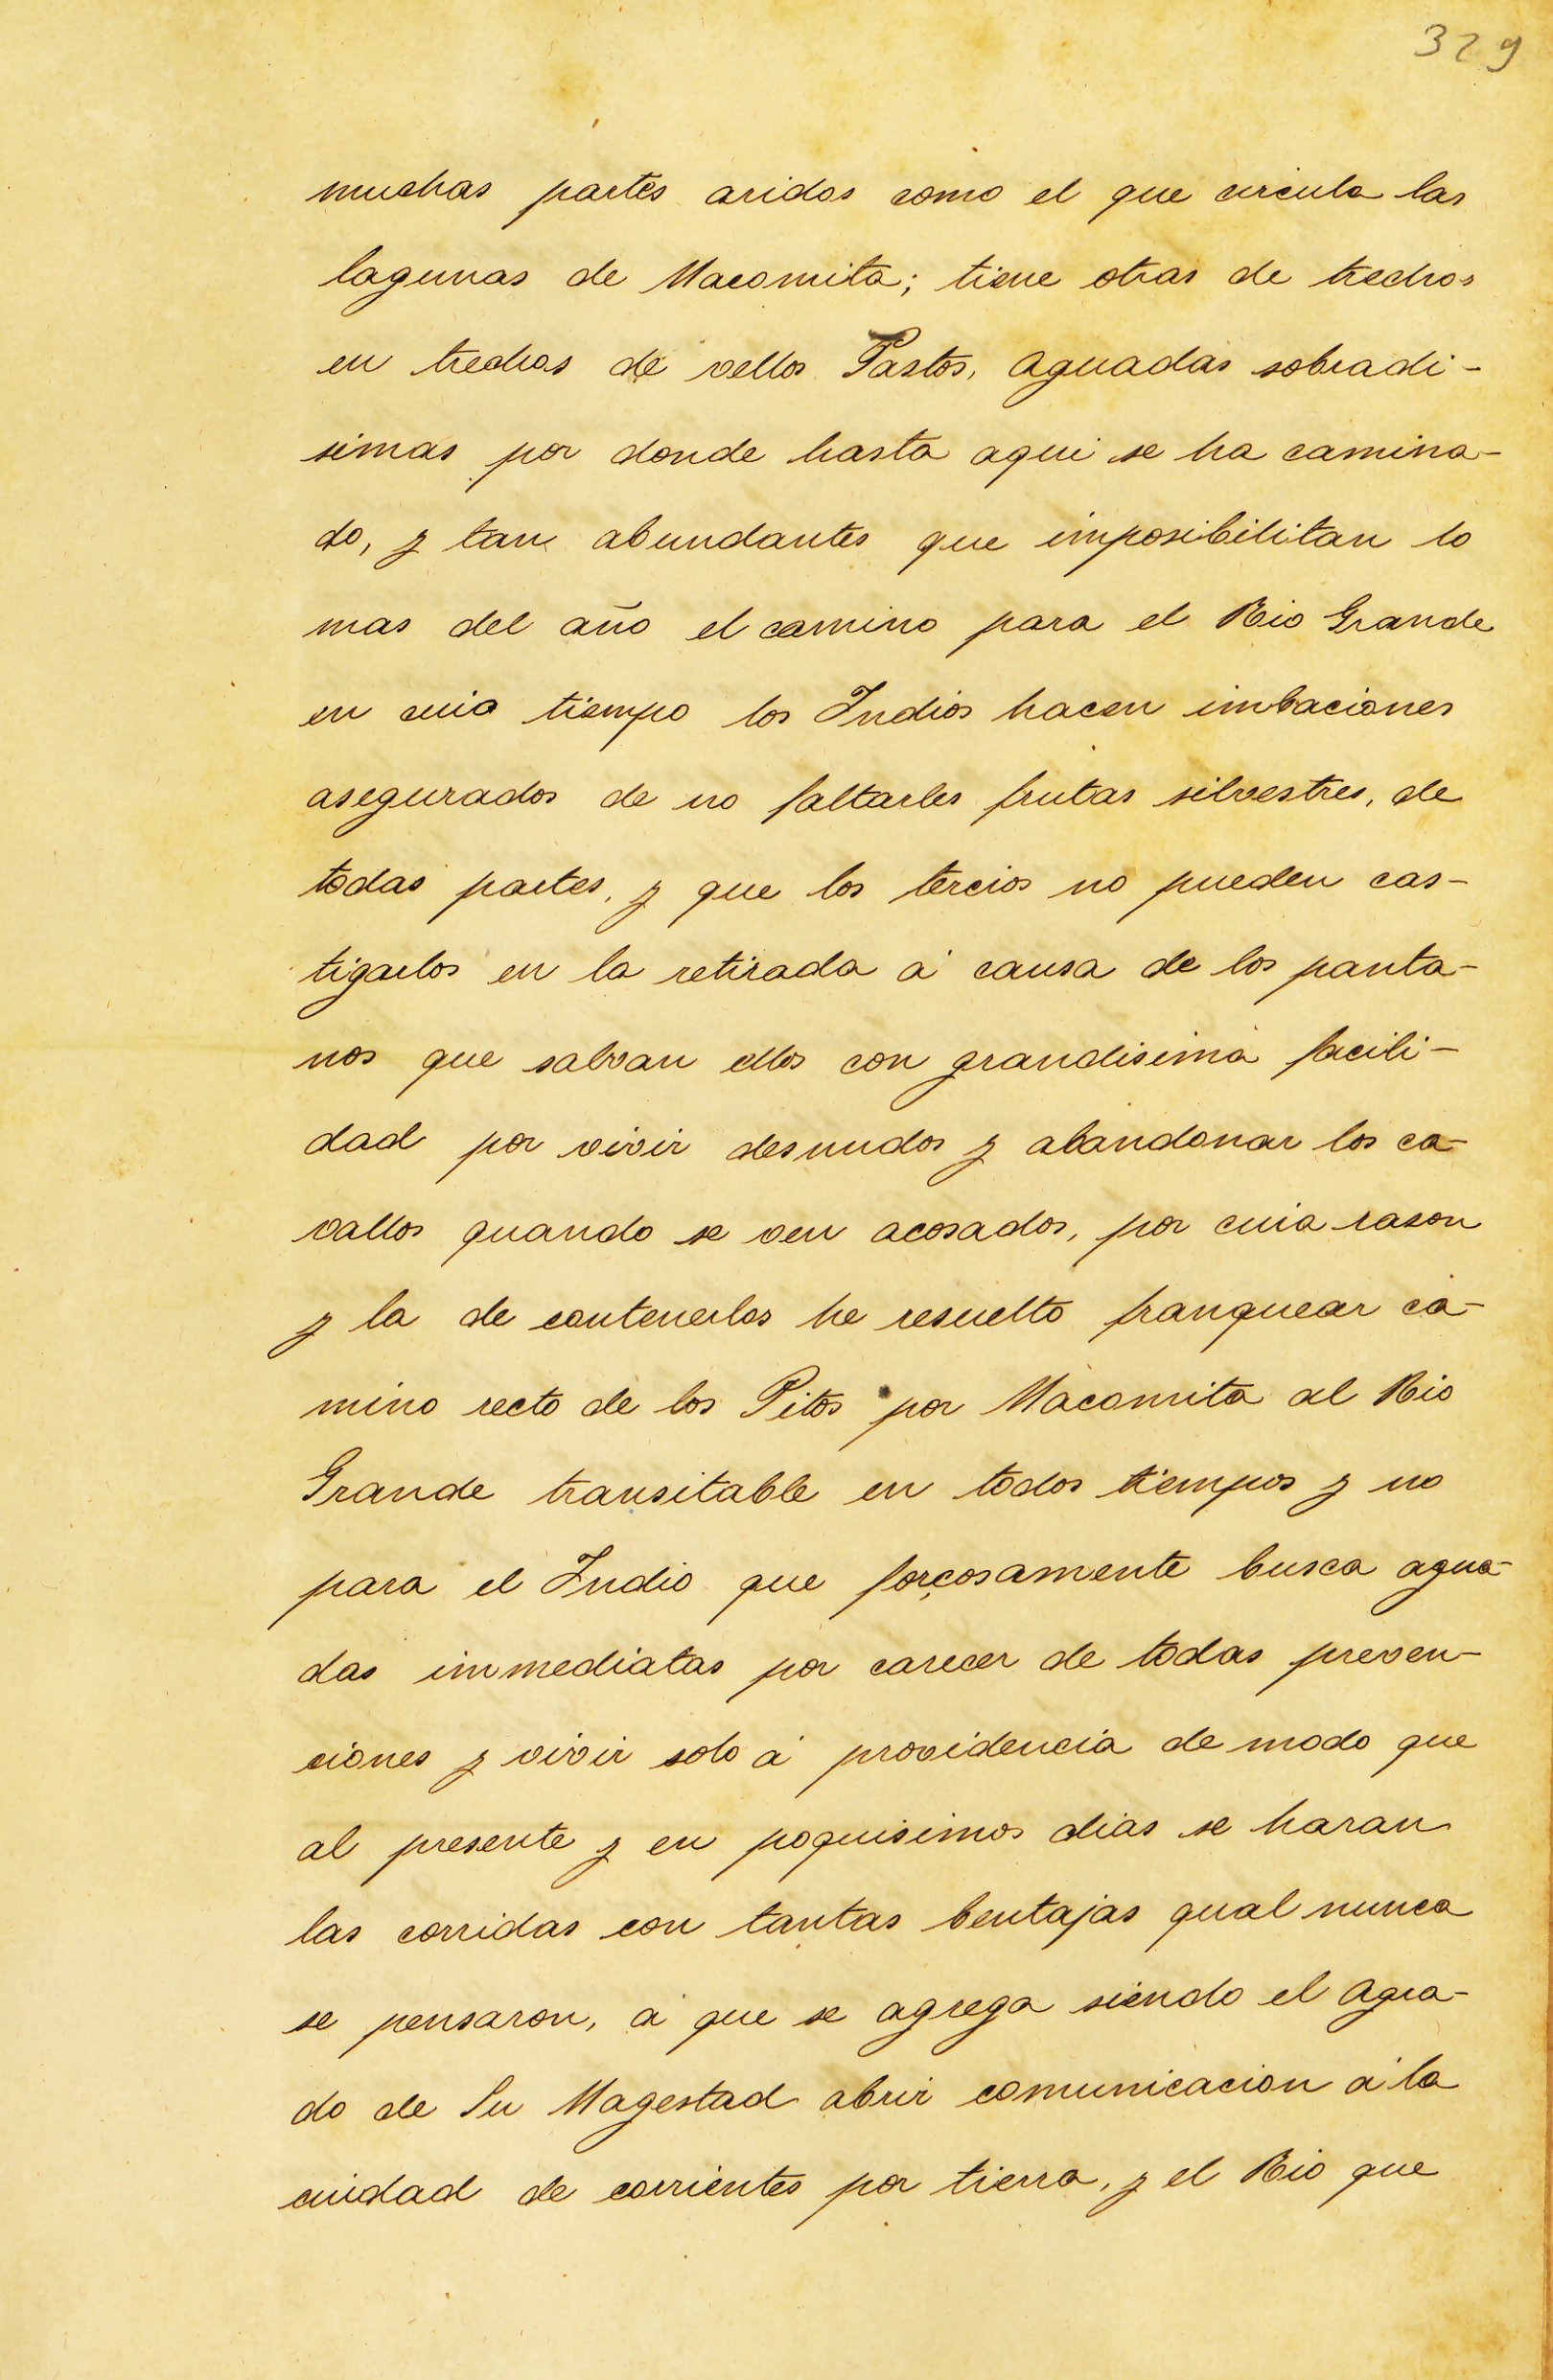 329
muchas partes aridos como el que circula las
lagunas de Macomita; tiene otras de trechos
en trechos de vellos Pastos, aguadas sobradi-
simas por donde hasta aqui se ha camina-
do, y tan abundantes que imposibilitan lo
mas del año el camino para el Rio Grande
en cuio tiempo los Indios hacen imbaciones
asegurados de no faltarles frutas silvestres, de
todas partes, y que los tercios no pueden cas-
tigarlos en la retirada á causa de los panta-
nos que salvan ellos con grandisima facili-
dad por vivir desnudos y abandonar los ca-
vallos quando se ven acosados, por cuia rason
y la de contenerlos he resuelto franquear ca-
mino recto de los Pitos por Macomita al Rio
Grande transitable en todos tiempos y no
para el Indio que forçosamente busca agua-
das immediatas por carecer de todas preven-
ciones y vivir solo á providencia de modo que
al presente y en poquisimos dias se haran
las corridas con tantas bentajas qual nunca
se pensaron, á que se agrega siendo el agra-
do de Su Magestad abrir comunicacion á la
ciudad de corrientes por tierra, y el Rio que